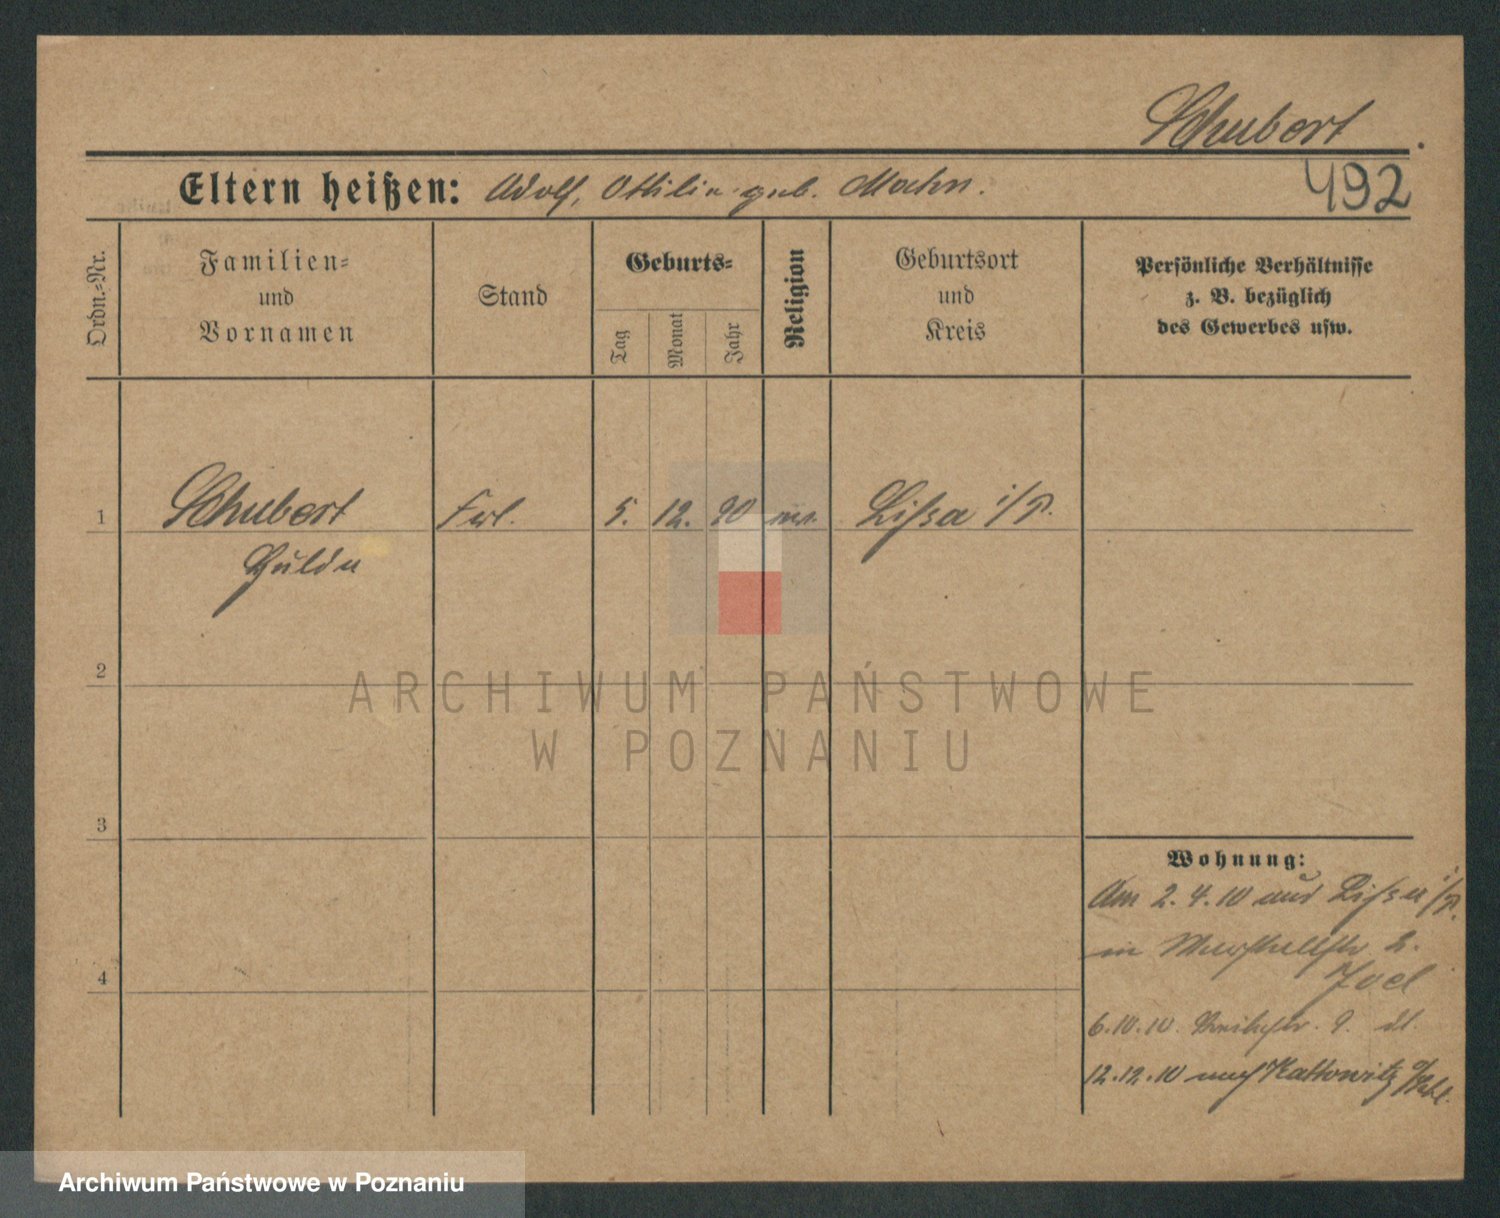 Schubert.
492
Eltern heißen: Adolf, Ottilie geb. Mahn.
Ordn.-Nr.
Familien-
und
Vornamen
Stand
Geburts-
Tag
Monat
Jahr
Religion
Geburtsort
und
Kreis
Persönliche Verhältnisse
z. B. bezüglich
des Gewerbes usw.
1 Schubert Frl. 5. 12. 90 Lissa i/P.
Hulda
2
3
4
Wohnung:
Am 2.4.10 aus Lissa i/P.
in 2.
Joel
6.10.10. 9.
12.12.10 nach Kattowitz
ARCHIWUM PAŃSTWOWE
W POZNANIU
Archiwum Państwowe w Poznaniu